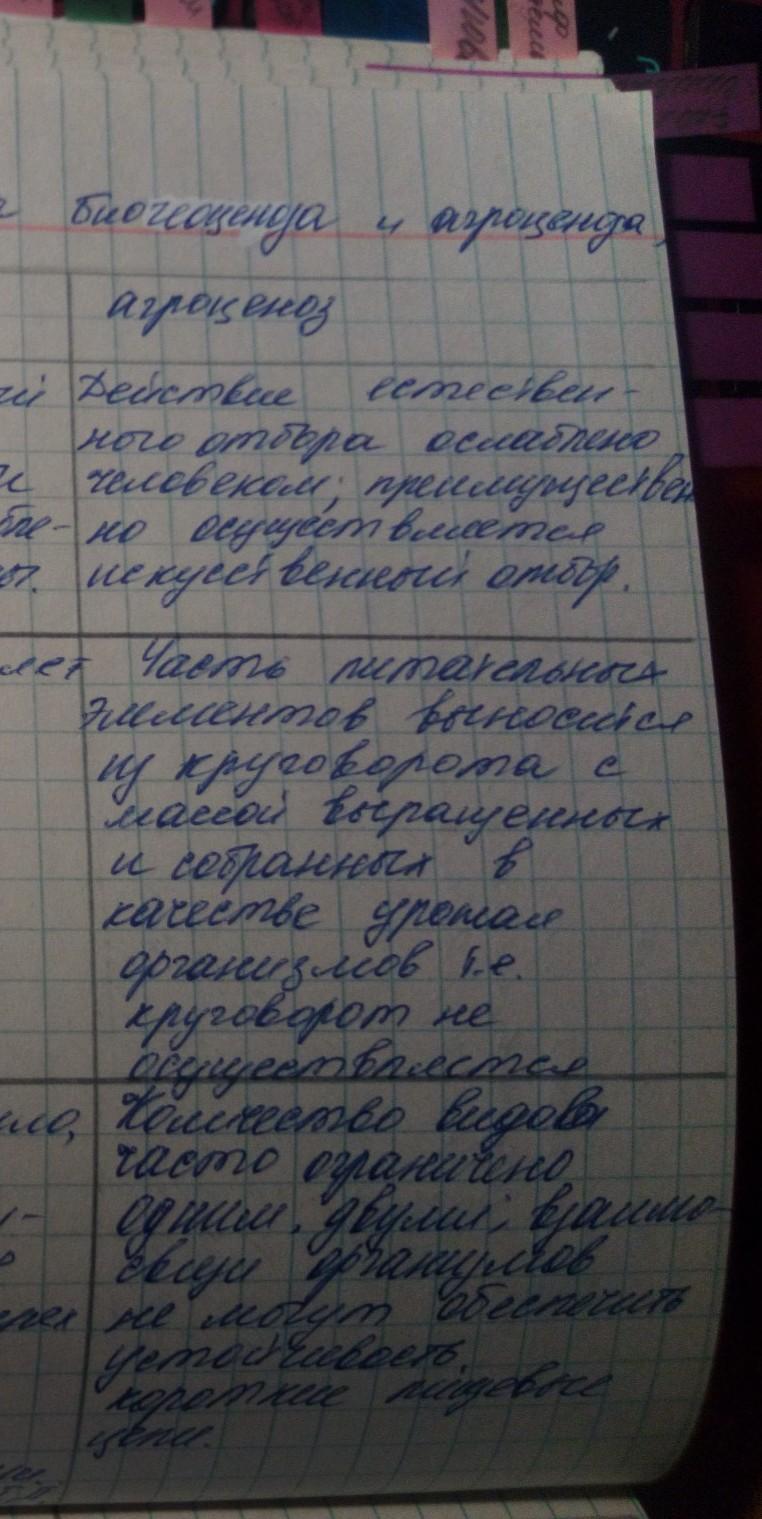 биогеоценоза и агроценоза,
агроценоз
Действие естествен-
ного отбора ослаблено
человеком; преимуществен
но осуществляется
искусственный отбор.
Часть питательных
элементов выносится
из круговорота с
массой выращенных
и собранных в
качестве урожая
организмов т.е.
круговорот не
осуществляется
Количество видов
часто ограничено
одним, двумя; взаимо-
связи организмов
не могут обеспечить
устойчивость.
короткие пищевые
цепи.